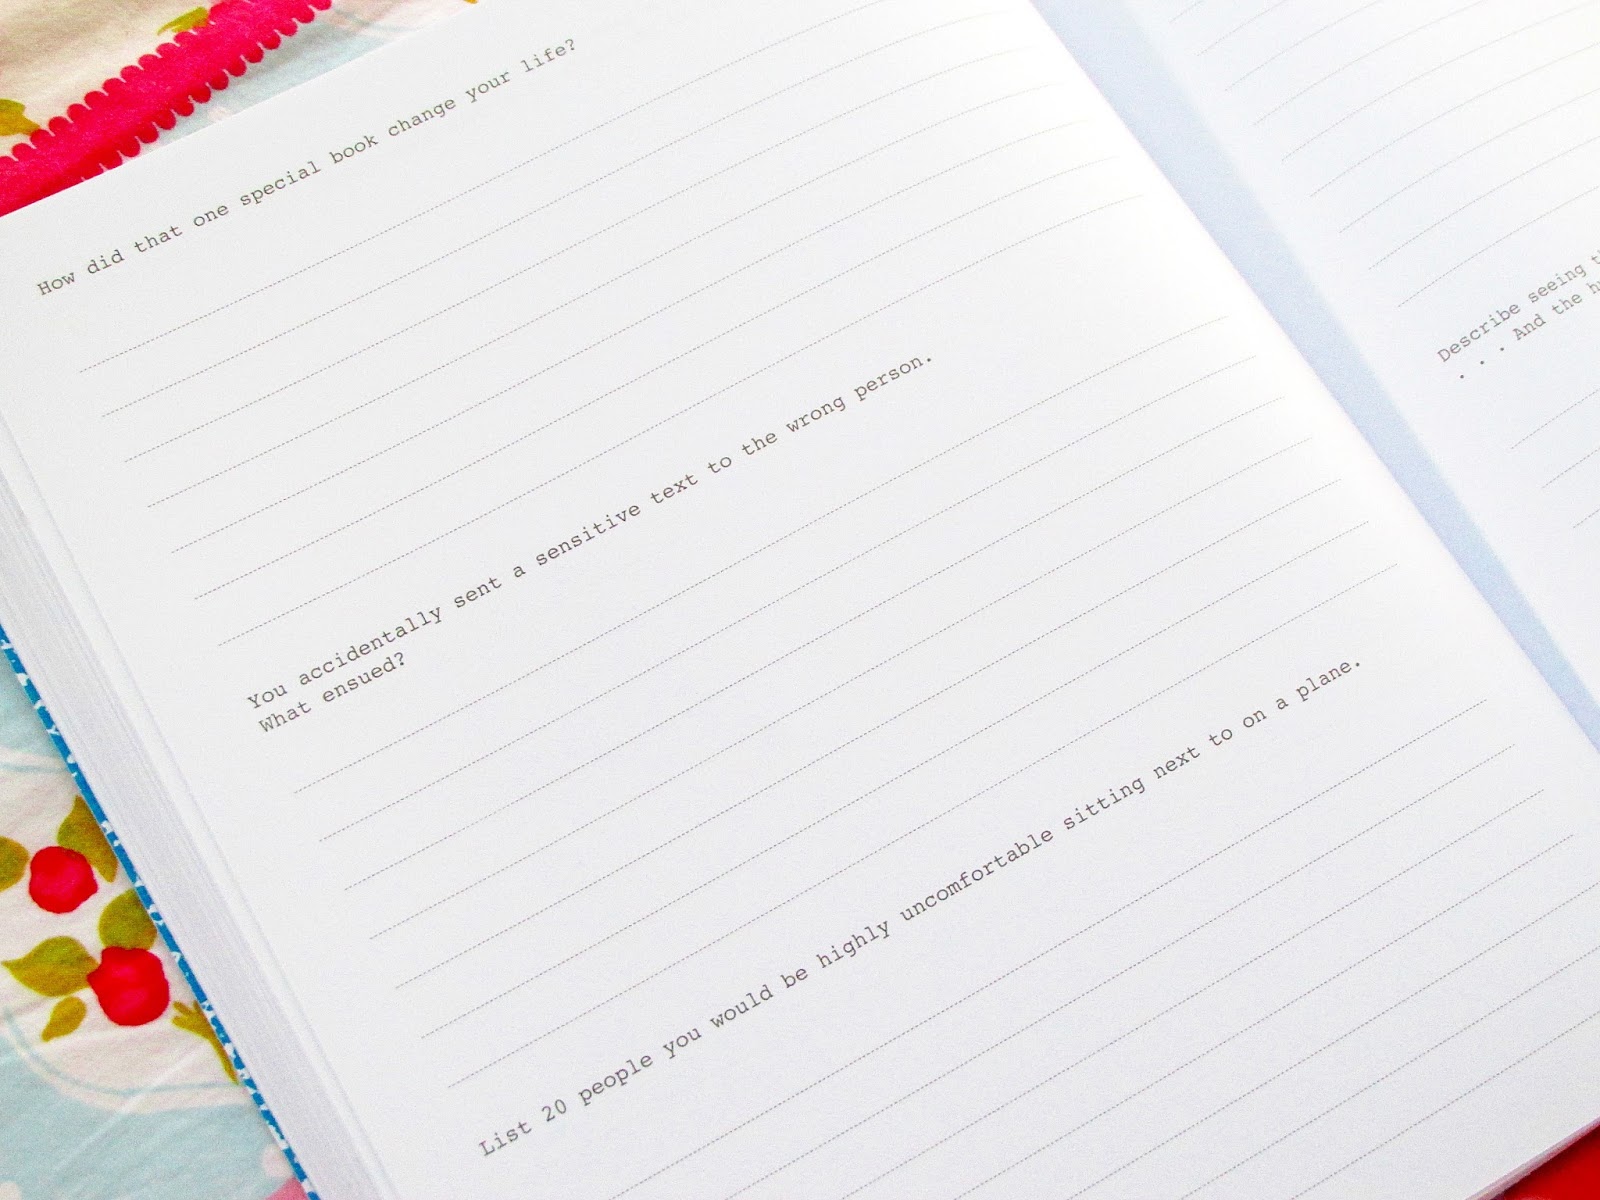 How did that one special book change your life?
You accidentally sent a sensitive text to the wrong person.
What ensued?
List 20 people you would be highly uncomfortable sitting next to on a plane.
Describe seeing
. . . And the